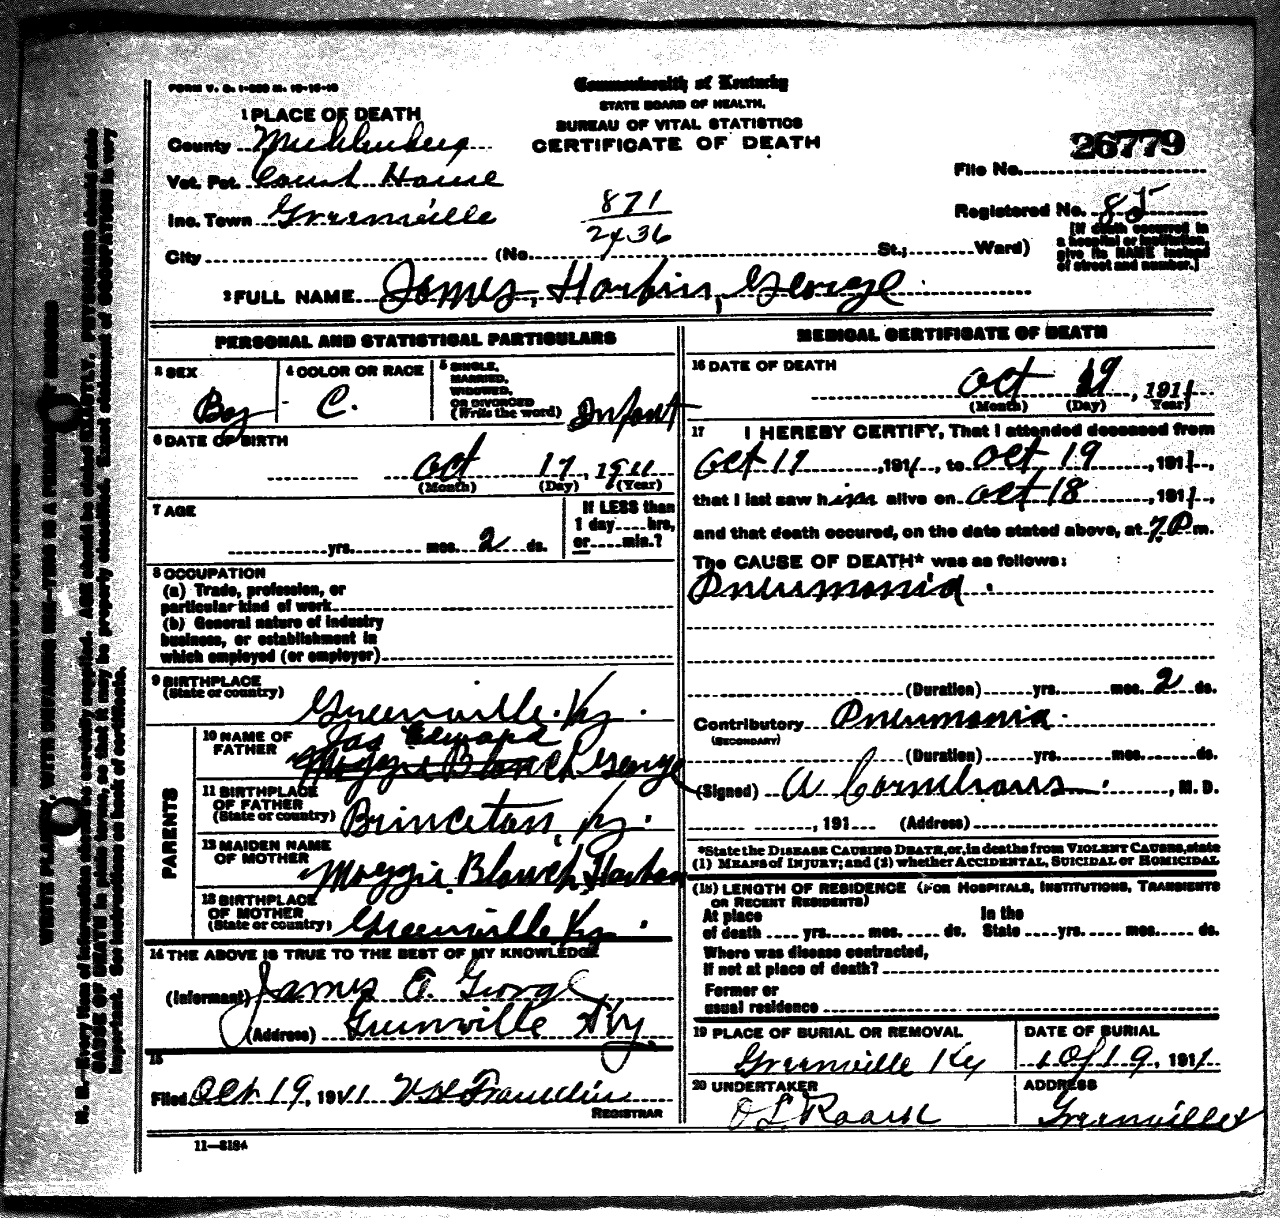 FORM V. S. 1-
Commonwealth of Kentucky
STATE BOARD OF HEALTH.
BUREAU OF VITAL STATISTICS
CERTIFICATE OF DEATH
1 PLACE OF DEATH
County Muhlenberg
Vot. Pct. Court House
Inc. Town Greenville
City (No. St.; Ward)
871
2436
26779
File No.
Registered No. 85
[If death occurred in a hospital or institution, give its NAME instead of street and number.]
2 FULL NAME James, Harbin, George
PERSONAL AND STATISTICAL PARTICULARS
3 SEX
Boy
4 COLOR OR RACE
C.
5 SINGLE, MARRIED, WIDOWED, OR DIVORCED (Write the word) Infant
6 DATE OF BIRTH
Oct 17, 1911
(Month) (Day) (Year)
7 AGE
yrs. mos. 2 ds.
If LESS than 1 day hrs, or min.?
8 OCCUPATION
(a) Trade, profession, or particular kind of work
(b) General nature of industry business, or establishment in which employed (or employer)
9 BIRTHPLACE
(State or country)
Greenville. Ky.
PARENTS
10 NAME OF FATHER
Jas Edward
Maggie Blanch George
11 BIRTHPLACE OF FATHER
(State or country) Princeton, Ky.
12 MAIDEN NAME OF MOTHER
Maggie Blanch Harbin
13 BIRTHPLACE OF MOTHER
(State or country) Greenville Ky.
14 THE ABOVE IS TRUE TO THE BEST OF MY KNOWLEDGE
(Informant) James E. George
(Address) Greenville Ky.
15
Filed Oct 19, 1911 Franklin
REGISTRAR
11—3184
MEDICAL CERTIFICATE OF DEATH
16 DATE OF DEATH
Oct 19, 1911
(Month) (Day) Year)
17 I HEREBY CERTIFY, That I attended deceased from
Oct 17, 191 , to Oct 19, 1911,
that I last saw him alive on Oct 18, 1911,
and that death occured, on the date stated above, at 7 P m.
The CAUSE OF DEATH* was as follows:
Pneumonia.
(Duration) yrs. mos. 2 ds.
Contributory Pneumonia.
(SECONDARY)
(Duration) yrs. mos. ds.
(Signed) , M. D.
, 191 (Address)
*State the DISEASE CAUSING DEATH, or, in deaths from VIOLENT CAUSES, state
(1) MEANS OF INJURY; and (2) whether ACCIDENTAL, SUICIDAL or HOMICIDAL
(18) LENGTH OF RESIDENCE (FOR HOSPITALS, INSTITUTIONS, TRANSIENTS
OR RECENT RESIDENTS)
At place of death yrs. mos. ds. In the State yrs. mos. ds.
Where was disease contracted,
If not at place of death?
Former or
usual residence
19 PLACE OF BURIAL OR REMOVAL
Greenville Ky
DATE OF BURIAL
19, 1911
20 UNDERTAKER
O L Roark
ADDRESS
Greenville